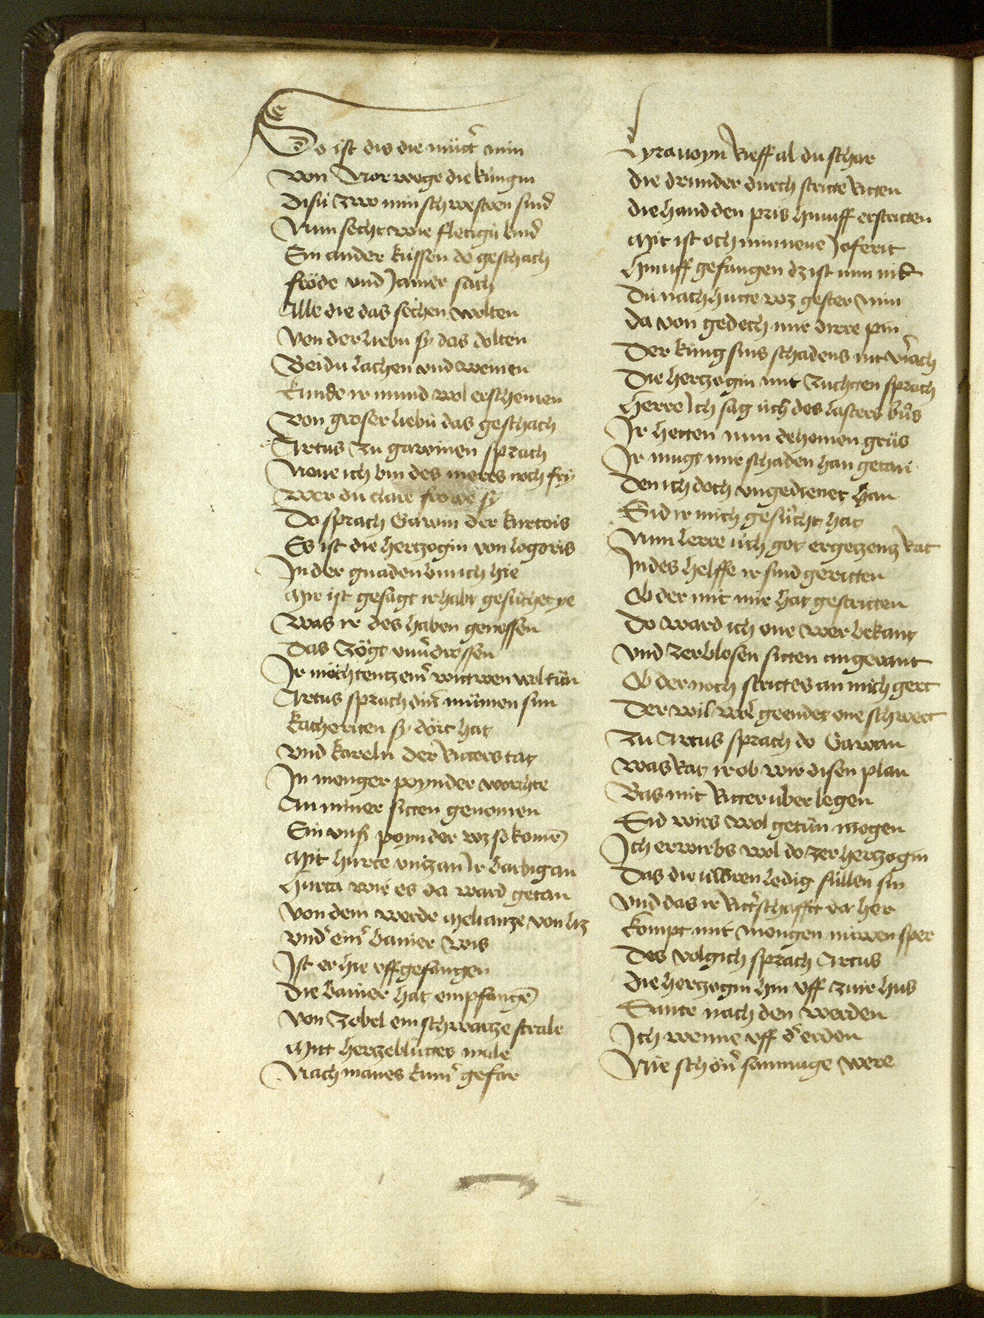 So ist dis die můter min
Von Norwege die kúngin
Disú zwo min schwestren sind
Nun secht wie fletigú kind
Ein ander kússen do geschach
fröde vnd Jamer sach
Alle die das sechen wolten
Von der liebú sy das dolten
Beidú lachen vnd weinen
kunde ir mund wol erscheinen
Von groser liebú das geschach
Artus zů gawinen sprach
Neve ich bin des meres noch fry
Wer dú clare frowe sy
Do sprach Gawin der kurtois
Es ist die hertzogin von logrois
In der gnaden bin ich hie
Mir ist gesagt ir habt gesůchet ye
Was ir des haben genossen
Das zögt vnuerdrossen
Ir möchtentz einer wittwen wol tůn
Artus sprach diner můmen sun
Kacheriten sy dört hat
Vnd kareln der Ritters tat
In menger poynder worchte
An miner sitten genomen
Ein vnser poynder wz so komen
Mit hurte vntz an Ir barbigan
Hurta wie es da ward getan
Von dem werde meliantze von liz
Vnder einer banier wis
Ist er hie vffgefangen
Die banier hat empfangen
Von Zobel ein schwartze strale
Mitt hertzeblůttes male
Nach manes kumer gefar
Lyravoyn Rieff al dú schar
die drunder durch stritte Ritten
die hand den pris hinuff erstritten
Mir ist och min neve Joferit
hinuff gefangen dz ist min nid
Dú nach hutte wz gester min
da von gedech mir dirre pin
Der kúng sins schadens nit verjach
Die hertzogin mit zuchten sprach
Herre Ich sag úch des lasters bůs
Ir hetten min deheinen grůs
Ir mugt mir schaden han getan
Den ich doch vngedienet han
Sid ir mich gesůcht hat
Nun lerre úch got ergetzens Rat
In des helffe ir sind geritten
Ob der mit mir hat gestritten
Do ward ich one wer bekant
Vnd zerblosen sitten angerant
Ob der noch strittes an mich gert
Der wil wol geendet one schwert
Zů Artus sprach do Gawan
Was Rat ir ob wir disen plan
Bas mit Ritter uber legen
Sid wirs wol getůn mogen
Ich erwirbs wol do zer hertzogin
Das die úweren ledig súllen sin
Vnd das ir Ritterschafft dar her
Kompt mit mengen núwen sper
Des volg ich sprach Artus
die hertzogin hin vff zuir hus
Sante nach den werden
Ich wenne vff der erden
Nie schöner samnuge were